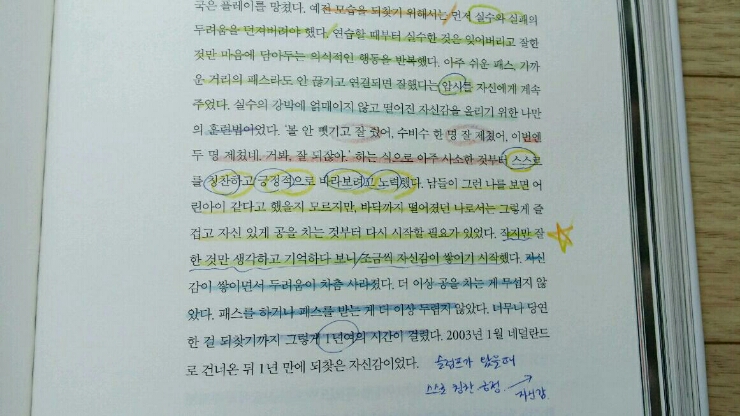 국은 플레이를 망쳤다. 예전 모습을 되찾기 위해서는 먼저 실수와 실패의
두려움을 던져버려야 했다. 연습할 때부터 실수한 것은 잊어버리고 잘한
것만 마음에 담아두는 의식적인 행동을 반복했다. 아주 쉬운 패스, 가까
운 거리의 패스라도 안 끊기고 연결되면 잘했다는 암시를 자신에게 계속
주었다. 실수의 강박에 얽매이지 않고 떨어진 자신감을 올리기 위한 나만
의 훈련법이었다. '볼 안 뺏기고 잘 줬어, 수비수 한 명 잘 제쳤어, 이번엔
두 명 제쳤네. 거봐, 잘 되잖아.' 하는 식으로 아주 사소한 것부터 스스로
를 칭찬하고 긍정적으로 바라보려고 노력했다. 남들이 그런 나를 보면 어
린아이 같다고 했을지 모르지만, 바닥까지 떨어졌던 나로서는 그렇게 즐
겁고 자신 있게 공을 차는 것부터 다시 시작할 필요가 있었다. 작지만 잘
한 것만 생각하고 기억하다 보니 조금씩 자신감이 쌓이기 시작했다. 자신
감이 쌓이면서 두려움이 차츰 사라졌다. 더 이상 공을 차는 게 무섭지 않
았다. 패스를 하거나 패스를 받는 게 더 이상 두렵지 않았다. 너무나 당연
한 걸 되찾기까지 그렇게 1년여의 시간이 걸렸다. 2003년 1월 네덜란드
로 건너온 뒤 1년 만에 되찾은 자신감이었다.
슬럼프가 왔을때
스스로 칭찬 긍정 → 자신감